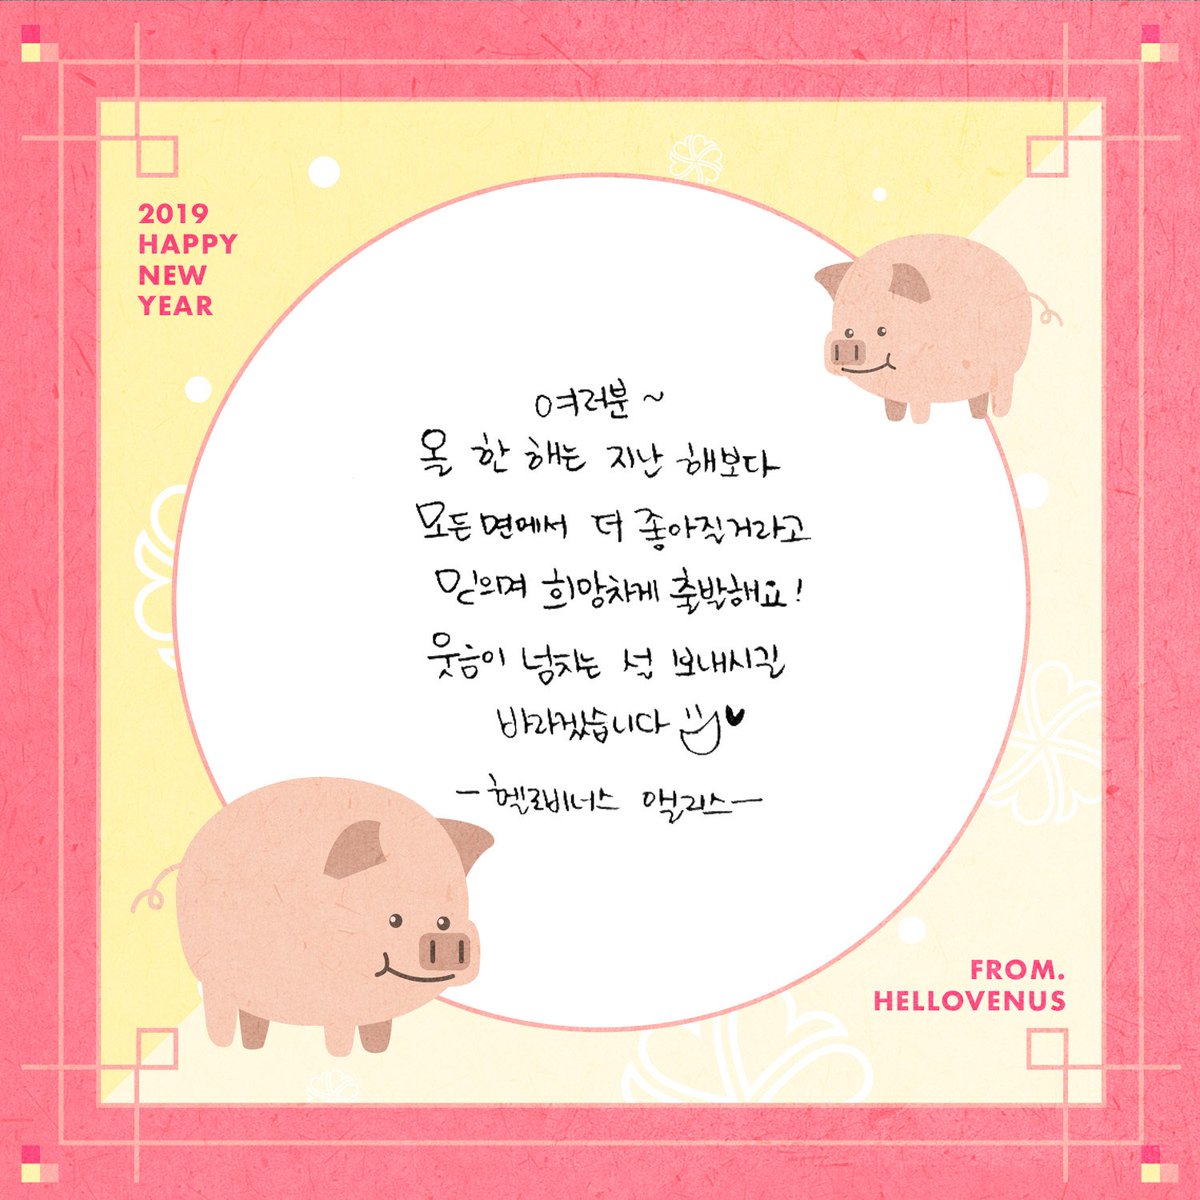 2019
HAPPY
NEW
YEAR
여러분~
올 한 해는 지난 해보다
모든면에서 더 좋아질거라고
믿으며 희망차게 출발해요!
웃음이 넘치는 설 보내시길
바라겠습니다
-헬로비너스 앨리스-
FROM.
HELLOVENUS